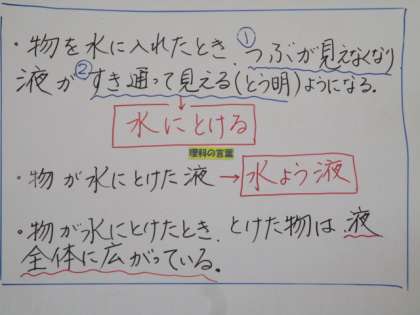 ・物を水に入れたとき、①つぶが見えなくなり
液が②すき通って見える(とう明)ようになる。
水にとける
理科の言葉
・物が水にとけた液→水よう液
・物が水にとけたとき、とけた物は、液
全体に広がっている。